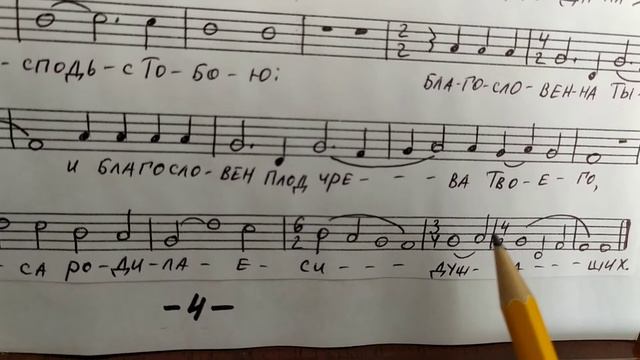 - СПОДЬ - С ТО - БО - Ю: БЛА-ГО-СЛО-ВЕН-НА ТЫ-
И БЛАГОСЛО-ВЕН ПЛОД ЧРЕ - - - ВА ТВО-Е-ГО,
СА РО-ДИ-ЛА - Е - СИ - - - ДУШ- - - - ШИХ.
-4-